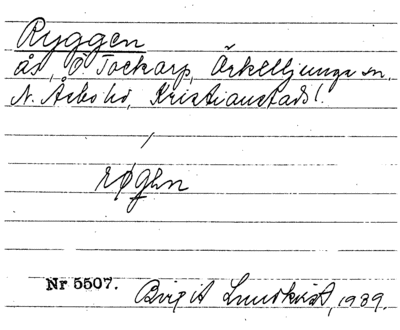 Ryggen
ås, Ö Tockarp, Örkelljunga sn,
N. Åsbo hd, Kristianstads l.
/
røgen
Nr 5507. Birgit Lundkvist, 1939.